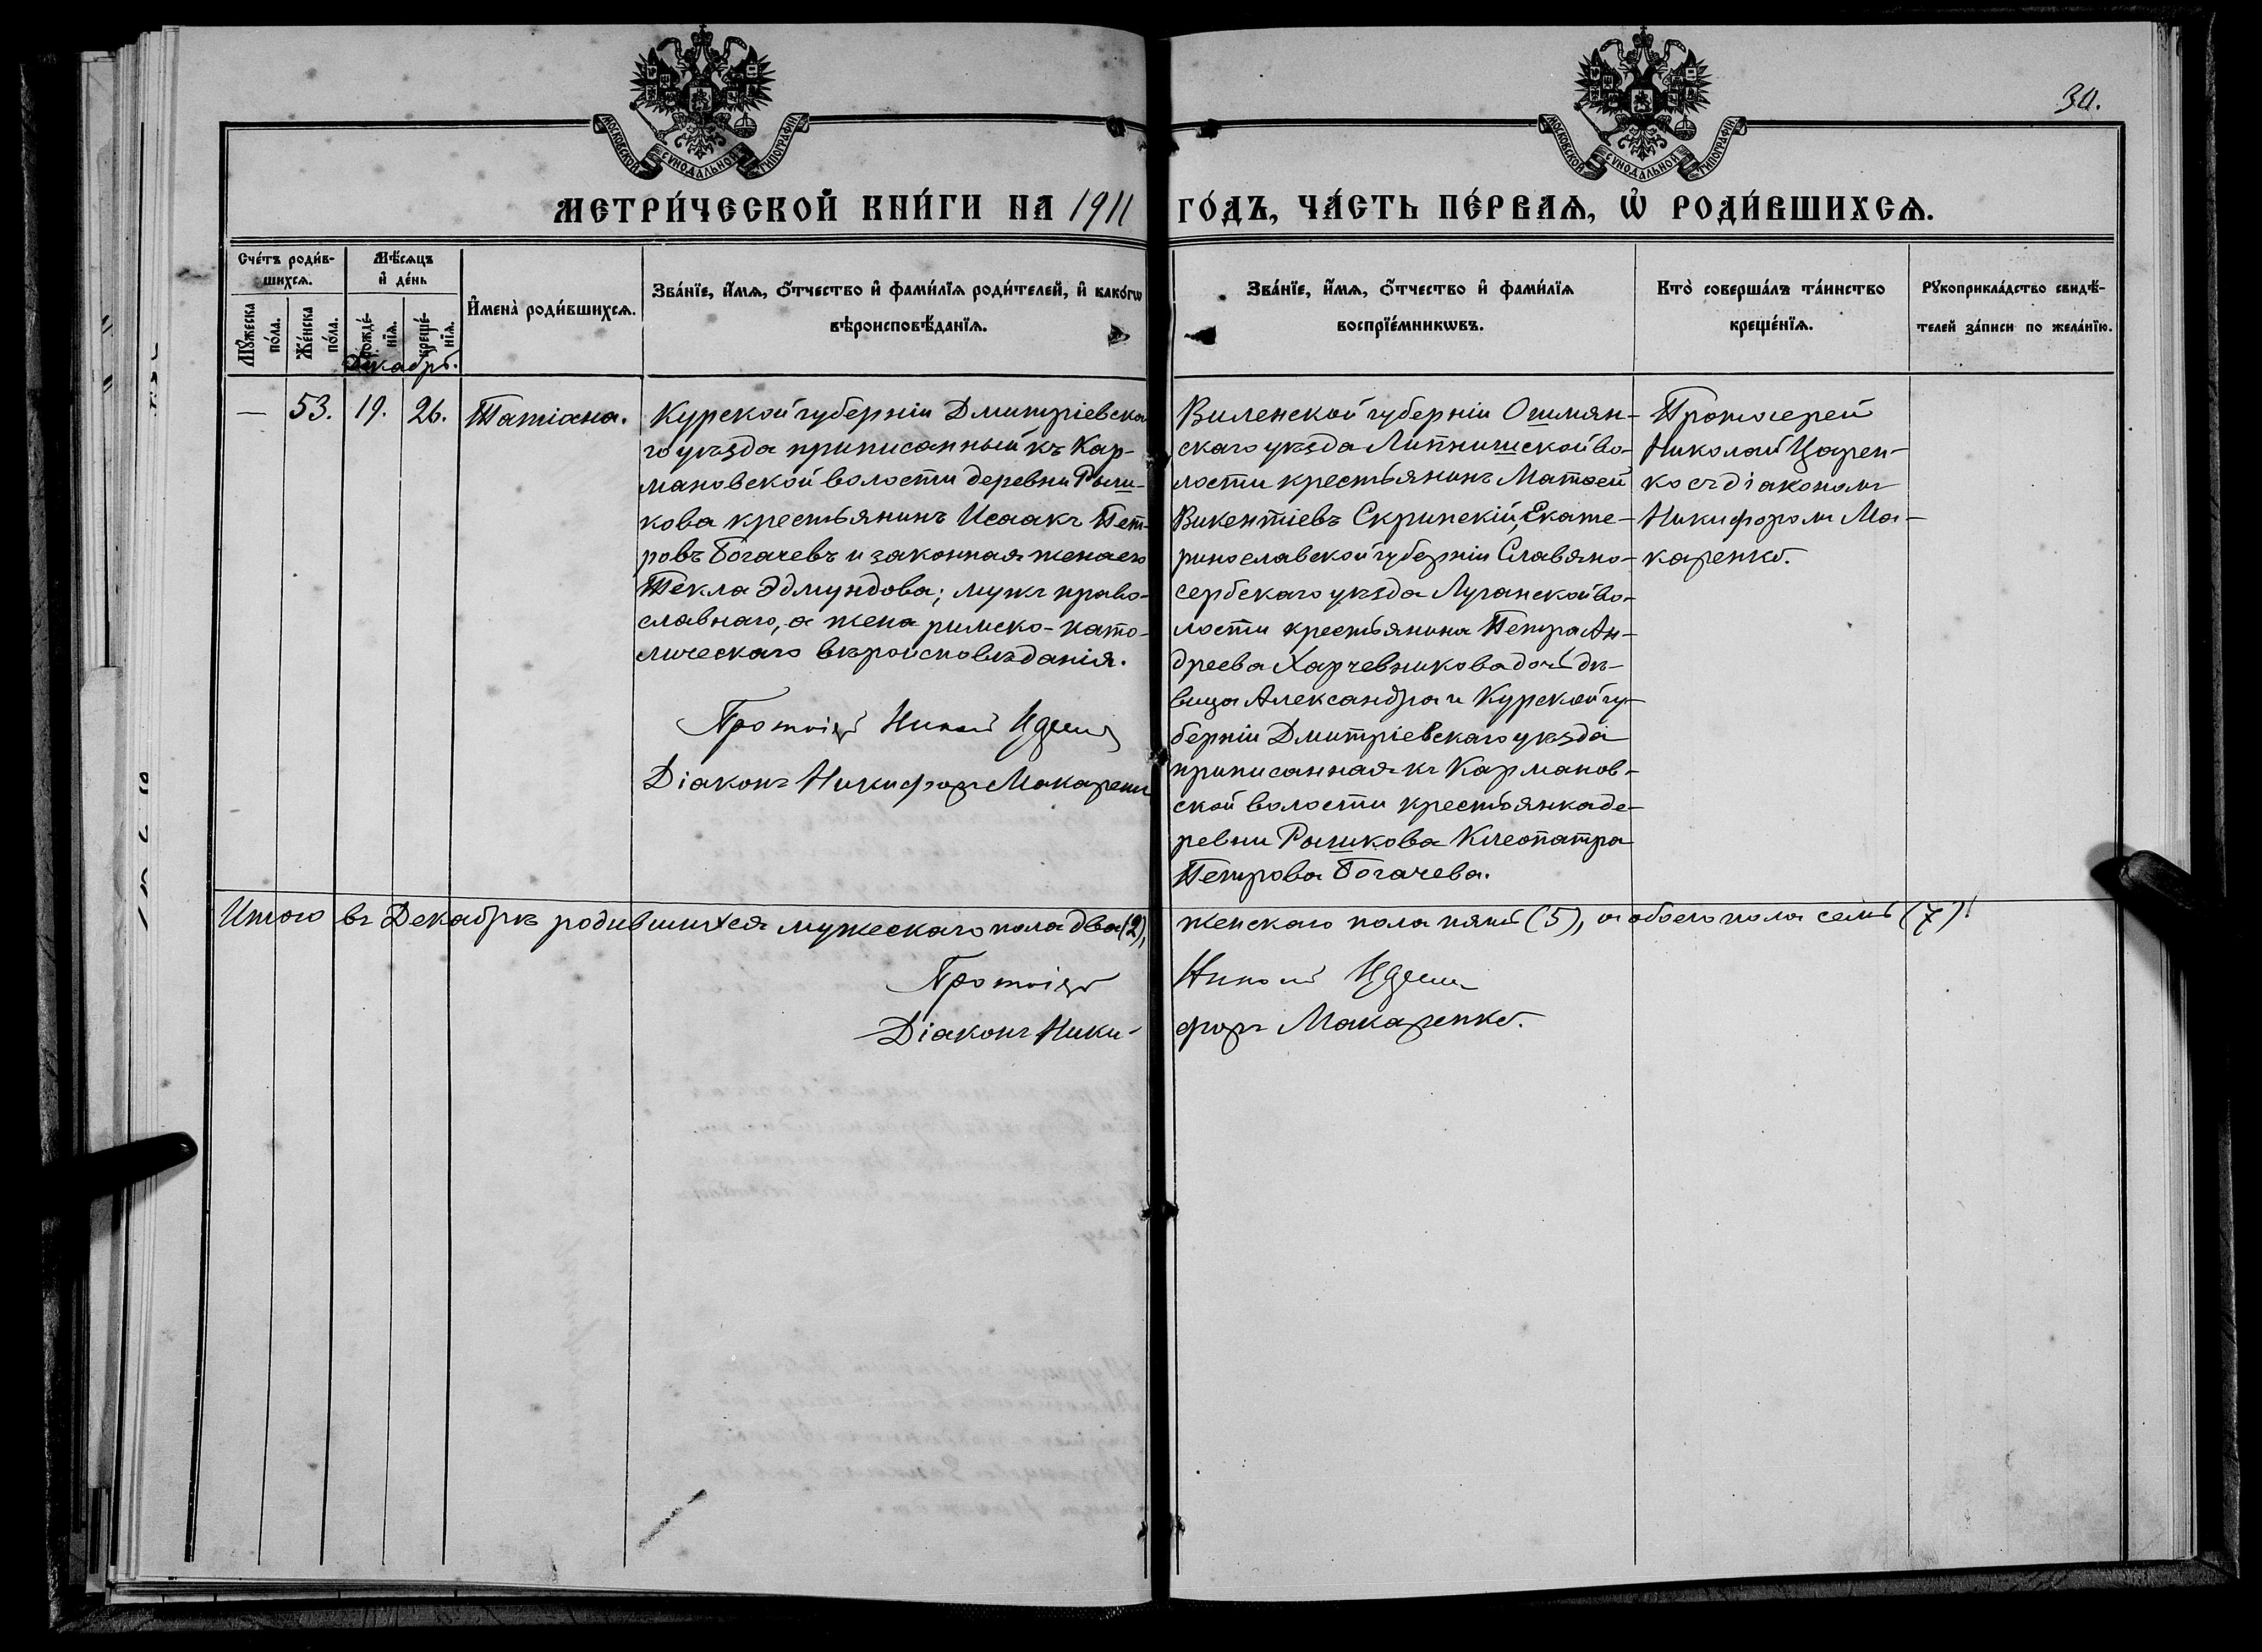 30.
МОСКОВСКОЙ СѴНОДАЛЬНОЙ ТИПОГРАФІИ
МОСКОВСКОЙ СѴНОДАЛЬНОЙ ТИПОГРАФІИ
МЕТРИ́ЧЕСКОЙ КНИ́ГИ НА 1911 ГО́ДЪ, ЧА́СТЬ ПЕ́РВАѦ, Ѡ҆ РОДИ́ВШИХСѦ.
Сче́тъ роди́в-
шихсѧ.
Мꙋ́жеска
по́ла.
Же́нска
по́ла.
Мѣ́сѧцъ
и҆ де́нь
рожде́-
нїѧ.
креще́-
нїѧ.
Декабрь.
И҆мена̀ роди́вшихсѧ.
Зва́нїе, и҆́мѧ, ѻ҆́тчество и҆ фами́лїѧ роди́телей, и҆ како́гѡ
вѣроисповѣ́данїѧ.
Зва́нїе, и҆́мѧ, ѻ҆́тчество и҆ фами́лїѧ
воспрїе́мникѡвъ.
Кто̀ соверша́лъ та́инство
креще́нїѧ.
Рꙋкоприкла́дство свидѣ́-
телей за́писи по жела́нїю.
— 53. 19. 26. Татіана.
Курской губерніи Дмитріевска
го уѣзда приписанный къ Кар-
мановской волости деревни Рыш-
кова крестьянинъ Исаакъ Пет-
ровъ Богачевъ и законная жена его
Текла Эдмундова; мужъ право-
славнаго, а жена римско-като-
лическаго вѣроисповѣданія.
Протоіер
Діаконъ Никифоръ Макаренк
Виленской губерніи Ошмян-
скаго уѣзда Липнишской во-
лости крестьянинъ Матѳей
Викентіевъ Скрипскій, Екате-
ринославской губерніи Славяно-
сербскаго уѣзда Луганской во-
лости крестьянина Петра Ан-
дреева Харчевникова дочь дѣ-
вица Александра и Курской гу-
берніи Дмитріевскаго уѣзда
приписанная къ Карманов-
ской волости крестьянка де-
ревни Рышкова Клеопатра
Петрова Богачева.
Протоіерей
Николай Царен-
ко съ діакономъ
Никифоромъ Ма-
каренко.
Итого въ Декабрѣ родившихся мужескаго пола два (2), женскаго пола пять (5), а обоего пола семь (7).
Протоіер
Діаконъ Ники-форъ Макаренко.